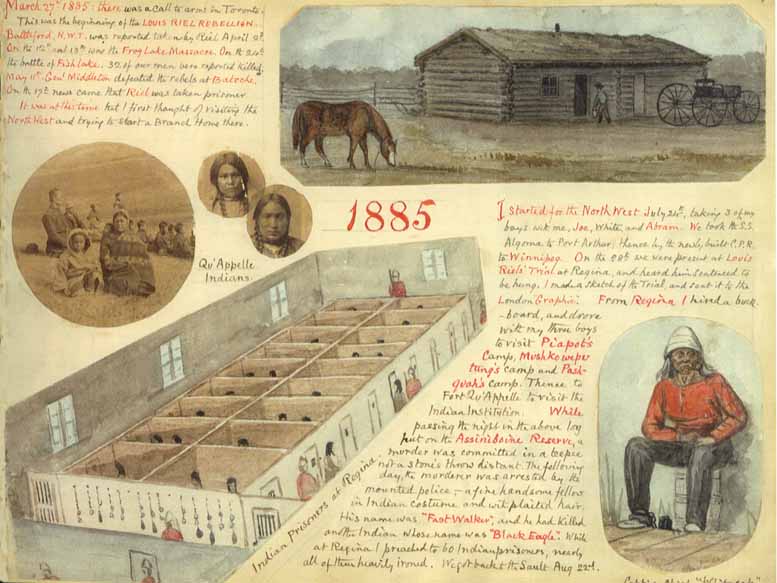 March 27th 1885: there was a call to arms in Toronto.
This was the beginning of the LOUIS RIEL REBELLION.
Battleford, N.W.T. was reported taken by Riel April 2d.
On the 12th and 13th was the Frog Lake Massacre. On the 24th
the battle of Fish Lake. 32 of our men were reported killed.
May 11th. Genl Middleton defeated the rebels at Batoche.
On the 17th news came that Riel was taken prisoner.
It was at this time that I first thought of visiting the
North West and trying to start a Branch Home there.
Qu'Appelle
Indians.
1885
I started for the North West July 24th, taking 3 of my
boys with me, Joe, White, and Abram. We took the S.S.
Algoma to Port Arthur; thence by the newly built C.P.R.
to Winnipeg. On the 28th we were present at Louis
Riels' Trial at Regina, and heard him sentenced to
be hung. I made a sketch of the Trial, and sent it to the
London Graphic. From Regina I hired a buck
-board, and drove
with my three boys
to visit Piapot's
Camp, Mushkowepe
tung's camp and Pash-
quah's camp. Thence to
Fort Qu'Appelle to visit the
Indian Institution. While
passing the night in the above log
hut on the Assiniboine Reserve, a
murder was committed in a teepee
not a stone's throw distant. The following
day, the murderer was arrested by the
mounted police, - a fine handsome fellow
in Indian costume and with plaited hair.
His name was "Fast Walker", and he had killed
another Indian whose name was "Black Eagle". While
at Regina I preached to 60 Indian prisoners, nearly
all of them heavily ironed. We got back to the Sault Aug 22d.
Indian Prisoners at Regina.